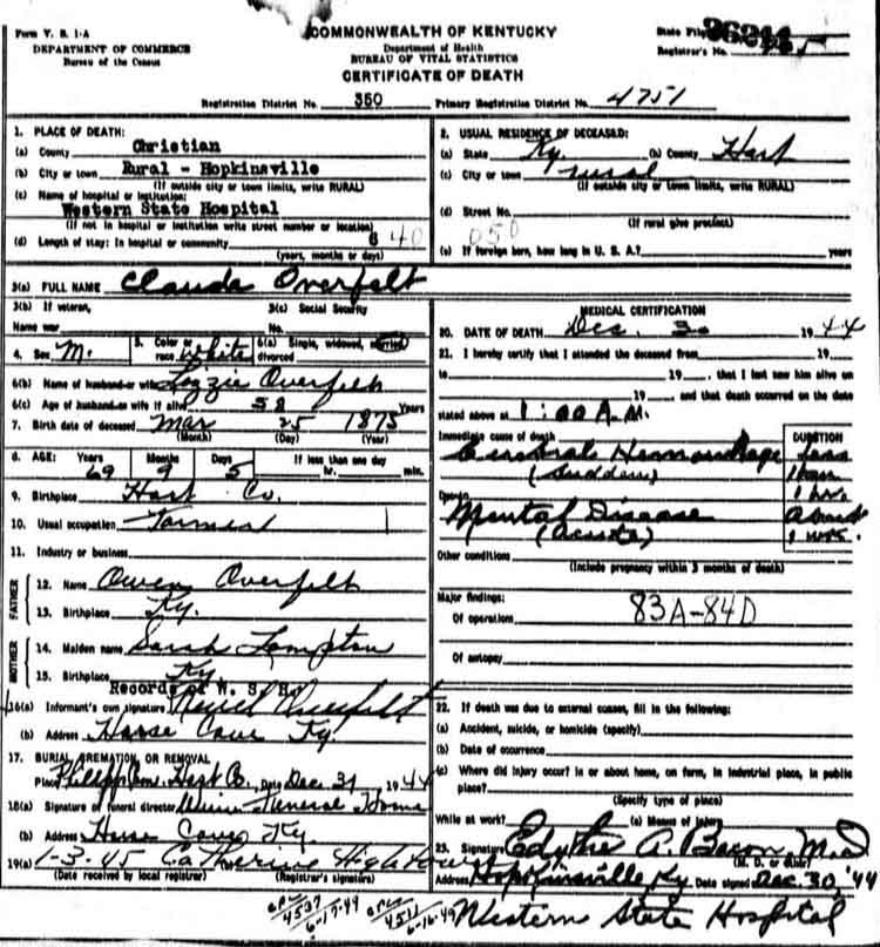 Form V. S. 1-A
DEPARTMENT OF COMMERCE
Bureau of the Census
COMMONWEALTH OF KENTUCKY
Department of Health
BUREAU OF VITAL STATISTICS
CERTIFICATE OF DEATH
State File
Registrar's No.
Registration District No. 350 Primary Registration District No. 4751
1. PLACE OF DEATH:
(a) County Christian
(b) City or town Rural - Hopkinsville
(If outside city or town limits, write RURAL)
(c) Name of hospital or institution:
Western State Hospital
(If not in hospital or institution write street number or location)
(d) Length of stay: In hospital or community 6 40
(years, months or days)
2. USUAL RESIDENCE OF DECEASED:
(a) State Ky. (b) County Hart
(c) City or town rural
(If outside city or town limits, write RURAL)
(d) Street No.
(If rural give precinct)
050
(e) If foreign born, how long in U. S. A.? years
3(a) FULL NAME Claude Overfelt
3(b) If veteran,
Name war
3(c) Social Security
No.
4. Sex M. 5. Color or race White 6(a) Single, widowed, married
divorced
6(b) Name of husband or wife Lizzie Overfelt
6(c) Age of husband or wife if alive 58 Years
7. Birth date of deceased Mar 25 1875
(Month) (Day) (Year)
8. AGE: Years Months Days If less than one day
69 9 5 hr. min.
9. Birthplace Hart Co.
10. Usual occupation Farmer
11. Industry or business
FATHER
12. Name Owen Overfelt
13. Birthplace Ky.
MOTHER
14. Maiden name Sarah Lampton
15. Birthplace Ky
Records of W. S. H.
16(a) Informant's own signature Overfelt
(b) Address Horse Cave Ky.
17. BURIAL, CREMATION, OR REMOVAL
Place Hart Co. Date Dec 31, 1944
18(a) Signature of funeral director Funeral Home
(b) Address Horse Cave Ky.
19(a) 1-3-45 Catherine Hightower
(Date received by local registrar) (Registrar's signature)
MEDICAL CERTIFICATION
20. DATE OF DEATH Dec. 30 1944
21. I hereby certify that I attended the deceased from 19
to 19, that I last saw him alive on
19 and that death occurred on the date
stated above at 1:00 A.M.
Immediate cause of death DURATION
Cerebral Hemorrhage Less
(Sudden) than
1 hr.
Due to
Mental Disease About
(Acute) 1 wk.
Other conditions
(Include pregnancy within 3 months of death)
Major findings:
Of operations 83A-84D
Of autopsy
22. If death was due to external causes, fill in the following:
(a) Accident, suicide, or homicide (specify)
(b) Date of occurrence
(c) Where did injury occur? in or about home, on farm, in industrial place, in public
place?
(Specify type of place)
While at work? (e) Means of injury
23. Signature Edythe A. Bacon, M.D
(M. D. or other)
Address Hopkinsville, Ky Date signed Dec. 30, '44
Western State Hospital
4537 6-17-49 4511 6-16-49